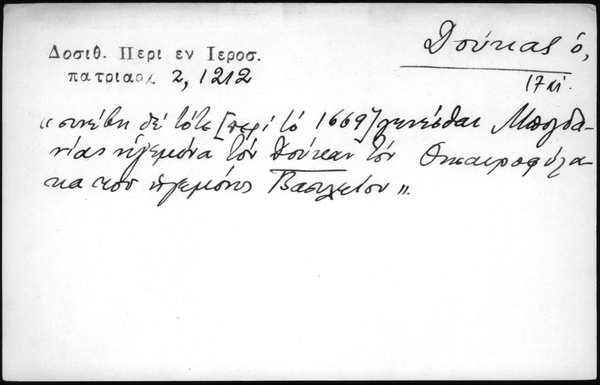 Δοσιθ. Περι εν Ιεροσ.
πατριαρχ 2, 1212
Δούκας ὁ,
17 αἰ.
«συνέβη δὲ τότε [περὶ τὸ 1669] γενέσθαι Μπογδα-
νίας ἡγεμόνα τὸν Δούκαν τὸν Θησαυροφύλα-
κα τοῦ ἡγεμόνος Βασιλείου».